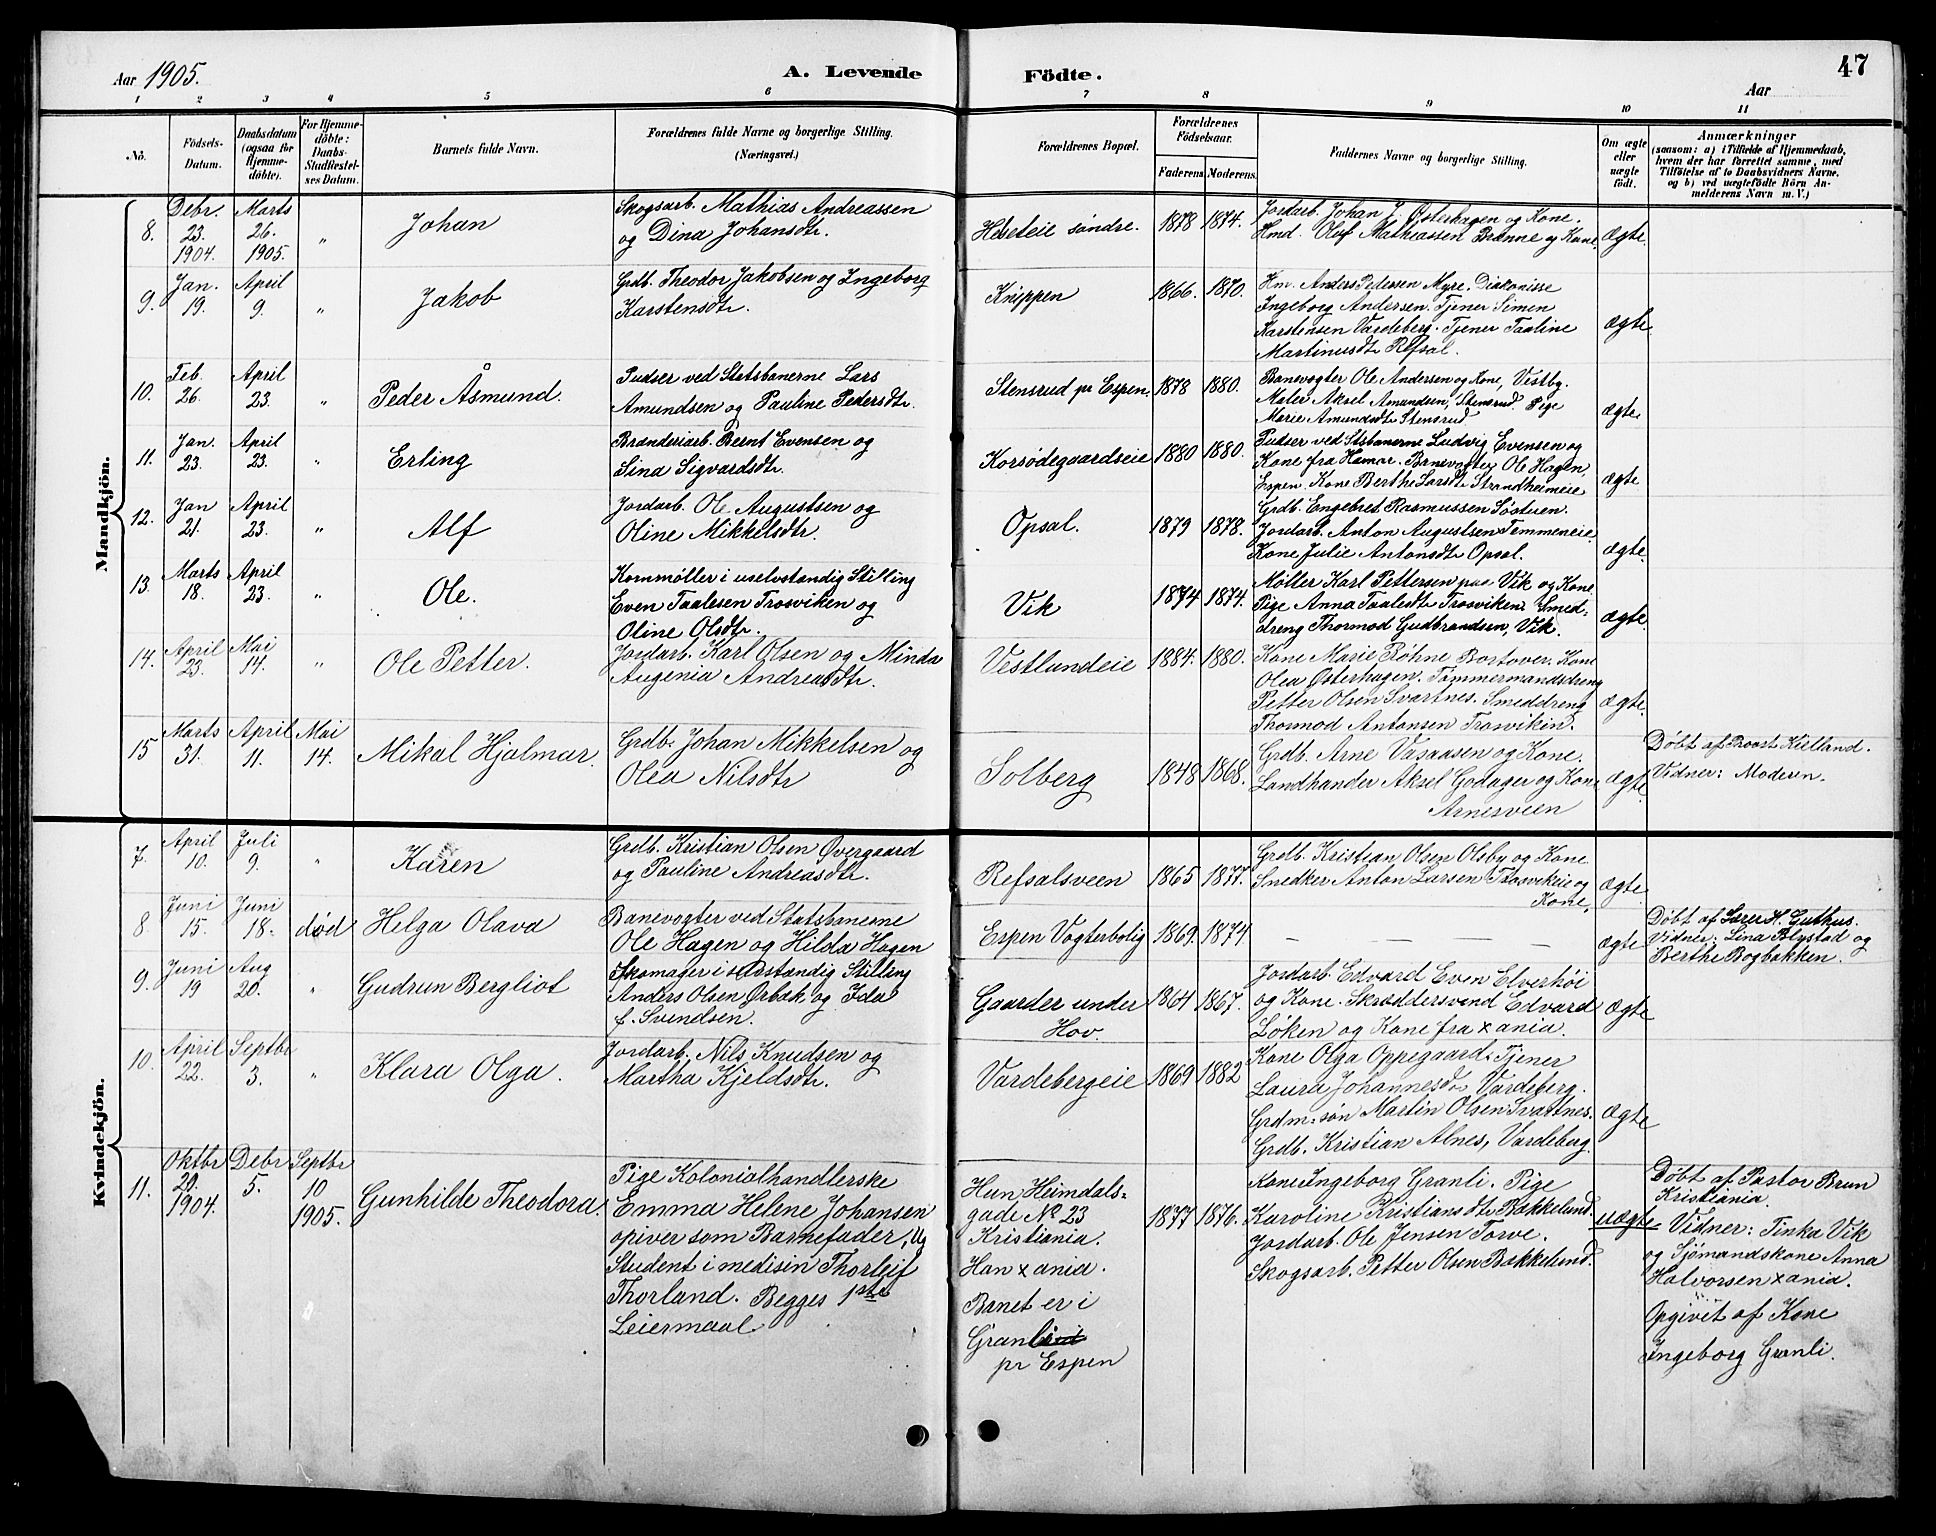 Aar 1905.
A. Levende
Födte.
Aar
47
1 2 3 4 5 6 7 8 9 10 11
No.
Födsels-
Datum.
Daabsdatum
(ogsaa for
Hjemme-
döbte).
For Hjemme-
döbte:
Daabs-
Stadfæstel-
ses Datum.
Barnets fulde Navn.
Forældrenes fulde Navne og borgerlige Stilling.
(Næringsvei.)
Forældrenes Bopæl.
Forældrenes
Födselsaar.
Faderens
Moderens.
Faddernes Navne og borgerlige Stilling.
Om ægte
eller
uægte
födt.
Anmærkninger
(saasom: a) i Tilfælde af Hjemmedaab,
hvem der har forrettet samme, med
Tilföielse af to Daabsvidners Navne,
og b) ved uægtefödte Börn An-
melderens Navn m. V.)
Mandkjön.
8.
Debr.
23.
1904.
Marts
26.
1905.
"
Johan
Skogsarb. Mathias Andreassen
og Dina Johansdtr.
søndre.
1878
1874.
Jordarb. Johan J. Østerhagen og Kone.
Hmd. Oluf Mathiassen Brænne og Kone.
ægte
9.
Jan.
19.
April
9.
"
Jakob
Grdb. Theodor Jakobsen og Ingeborg
Karstensdtr.
Knippen
1866.
1870.
Hm. Anders Pedersen Myre. Diakonisse
Ingeborg Andersen. Tjener Simen
Karstensen Vardeberg. Tjener Taaline
Martinusdtr Refsal.
ægte
10.
Feb.
26.
April
23.
"
Peder Åsmund.
Pudser ved Statsbanerne Lars
Amundsen og Pauline Pedersdtr.
Stensrud pr Espen.
1878
1880.
Banevogter Ole Andersen og Kone, Vestby.
Maler Aksel Amundsen, Stensrud. Pige
Marie Amundsdtr Stensrud
ægte
11.
Jan.
23.
April
23.
"
Erling
Brænderiarb. Bernt Evensen og
Lina Sigvardsdtr.
Korsödegaardseie
1880
1880.
Pudser ved Stsbanerne Ludvig Evensen og
Kone fra Hamar. Banevogter Ole Hagen,
Espen. Kone Berthe Larsdtr Strandheimeie
ægte
12.
Jan
21.
April
23.
"
Alf
Jordarb. Ole Augustsen og
Oline Mikkelsdtr.
Opsal.
1879
1878.
Grdb. Engebret Rasmussen Söstuen.
Jordarb. Anton Augustsen Temmeneie.
Kone Julie Antonsdtr Opsal.
ægte.
13.
Marts
18.
April
23.
"
Ole.
Kornmøller i uselvstændig Stilling
Even Taalesen Trosviken og
Oline Olsdtr.
Vik
1874
1874.
Møller Karl Pettersen paa Vik og Kone
Pige Anna Taalesdtr Trosviken. Smed-
dreng Thormod Gudbrandsen, Vik.
ægte.
14.
April
23.
Mai
14.
"
Ole Petter.
Jordarb. Karl Olsen og Minda
Augenia Andreasdtr.
Vestlundeie
1884.
1880.
Kone Marie Röhne Bortover. Kone
Olea Østerhagen. Tømmermandsdreng
Petter Olsen Svartnes. Smeddreng
Thormod Antonsen Trosviken.
ægte.
15
Marts
31.
April
11.
Mai
14.
Mikal Hjalmar.
Grdb. Johan Mikkelsen og
Olea Nilsdtr
Solberg
1848
1868.
Grdb. Arne Vasaasen og Kone.
Landhander Aksel Godager og Kone
Arnesveen
ægte.
Døbt af Provst Kielland.
Vidner: Moderen.
Kvindekjön.
7.
April
10.
Juli
9.
"
Karen
Grdb. Kristian Olsen Øvergaard
og Pauline Andreasdtr.
Refsalsveen
1865
1877.
Grdb. Kristian Olsen Olsby og Kone
Snedker Anton Larsen Trosvikeie og
Kone.
ægte
8
Juni
15.
Juni
18.
død
Helga Olava
Banevogter ved Statsbanerne
Ole Hagen og Hilda Hagen
Espen Vogterbolig
1869.
1874
— — — — —
ægte
Døbt af Lærer H. Guthus.
Vidner: Lina Blystad og
Berthe Bogbakken.
9.
Juni
19
Aug
20.
"
Gudrun Bergliot
Skomager i selvstændig Stilling
Anders Olsen Ørbæk og Ida
f. Svendsen.
Gaarder under
Hov.
1864
1867.
Jordarb. Edvard Even Elverhöi
og Kone. Skræddersvend Edvard
Løken og Kone fra xania.
ægte
10.
April
22.
Septbr
3.
"
Klara Olga.
Jordarb. Nils Knudsen og
Martha Kjeldsdtr.
Vardebergeie
1869
1882
Kone Olga Oppegaard. Tjener
Laura Johannesdr Vardeberg.
Grdm.søn Martin Olsen Svartnes.
Grdb. Kristian Alnes, Vardeberg.
ægte
11.
Oktbr
20.
1904.
Debr
5.
Septbr
10
1905.
Gunhilde Theodora.
Pige Kolonialhandlerske
Emma Helene Johansen
opiver som Barnefader, Ug
Student i medisin Thorleif
Thorland. Begges 1ste
Leiermaal.
Hun Heimdals-
gade No 23
Kristiania.
Han xania.
Banet er i
Granli
pr Espen
1877
1876.
Kone Ingeborg Granli. Pige
Karoline Kristiansdtr Bækkelund.
Jordarb. Ole Jensen Torve.
Skogsarb. Petter Olsen Bækkelund.
uægte
Døbt af Pastor Brun
Kristiania.
Vidner: Tinka Vik
og Sjömandskone Anna
Halvorsen xania.
Opgivet af Kone
Ingeborg Granli.